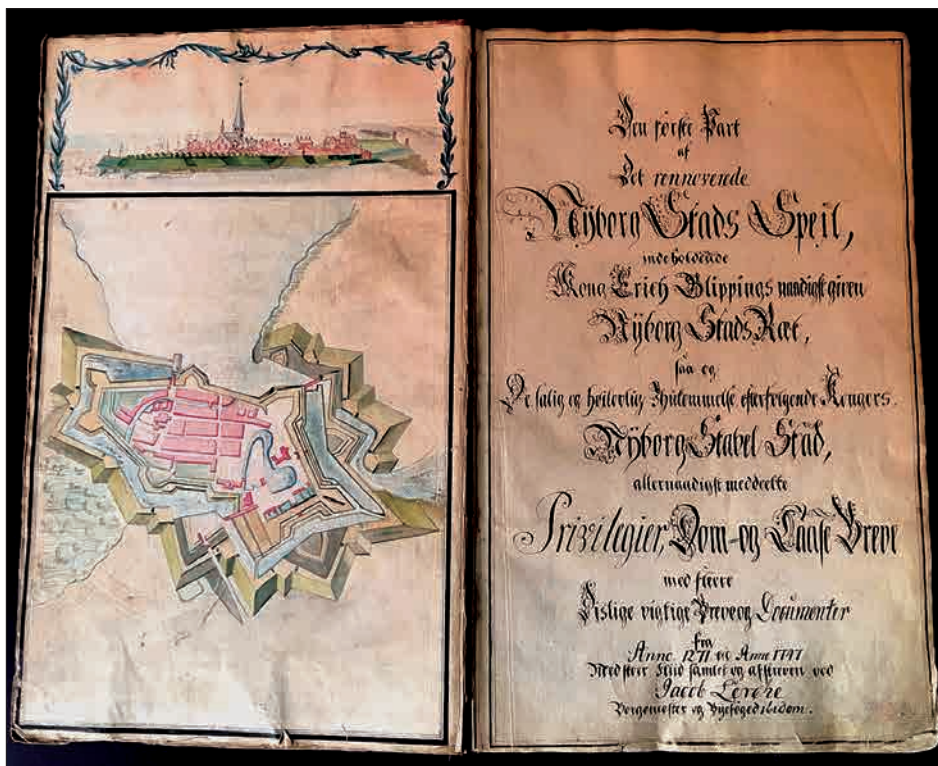 Den første Part
af
Det rennoverede
Nÿborg Stads Speil,
indeholdende
Kong Erich Glippings naadigst given
Nÿborg Stads Ræt,
saa og
De salig og høilovlig Ihukommelse efterfølgende Kongers.
Nÿborg Stabel Stad,
allernaadigst meddeelte
Privilegier, Dom-og Laase Breve
med fleere
Dislige vigtige Breve og Documenter
fra
Anno 1271 til Anno 1747
Med stor Flid samlet og afskreven ved
Jacob
Borgemester og Byefoged ibidem.